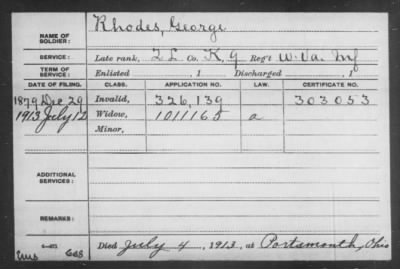 Rhodes, George
NAME OF SOLDIER:
SERVICE: Late rank, 2 L Co. K, 9 Reg't W. Va. Inf
TERM OF SERVICE: Enlisted , 1 Discharged , 1
DATE OF FILING. CLASS. APPLICATION NO. LAW. CERTIFICATE NO.
1879 Dec 29 Invalid, 326,139 303053
1913 July 12 Widow, 1011165 a
Minor,
ADDITIONAL SERVICES:
REMARKS:
Died July 4, 1913, at Portsmouth, Ohio